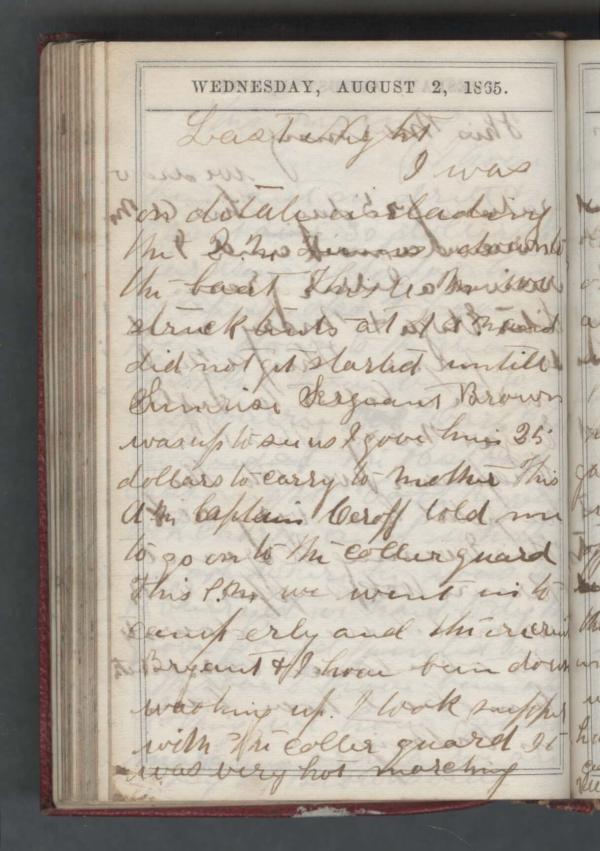 WEDNESDAY, AUGUST 2, 1865.
Last night
I was
on
the Q.M. down to
the boat This A M we
struck tents at
did not get started untill
Sunrise Serguant Brown
was up to see us I gave him 25
dollars to carry to Mother This
A M Captain Ceroff told me
to go on to the coller guard
This P.M. we went in to
camp erly and
Bryant & I have been down
washing up. I took supper
with the coller guard It
was very hot marching